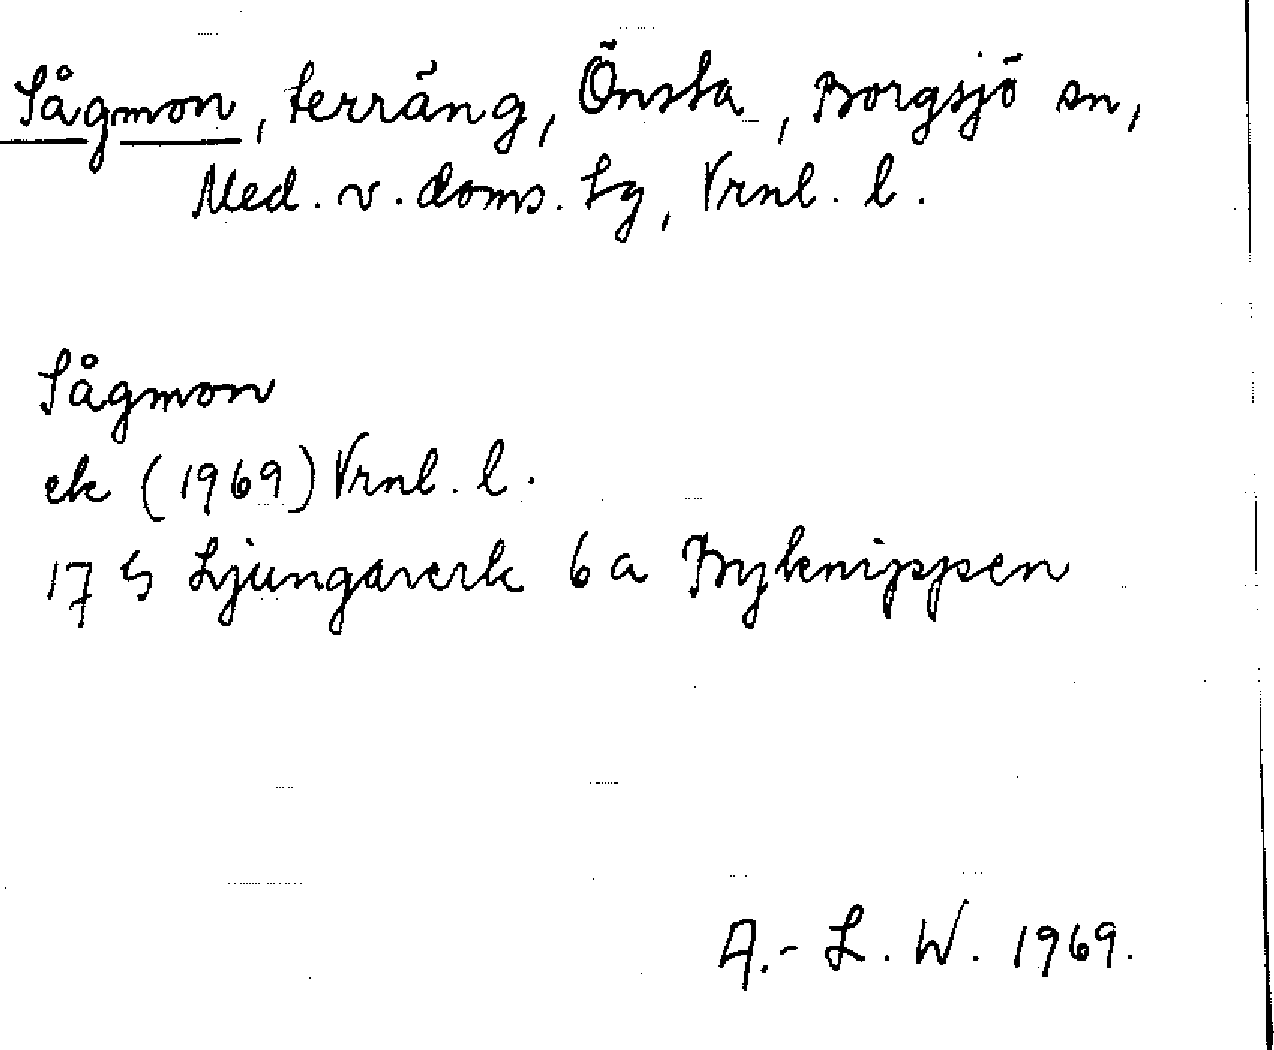 Sågmon, terräng, Önsta, Borgsjö sn,
Med. v. doms. tg, Vrnl. l.
Sågmon
ek (1969) Vrnl. l.
17 G Ljungaverk 6 a Byknippen
A.-L. W. 1969.